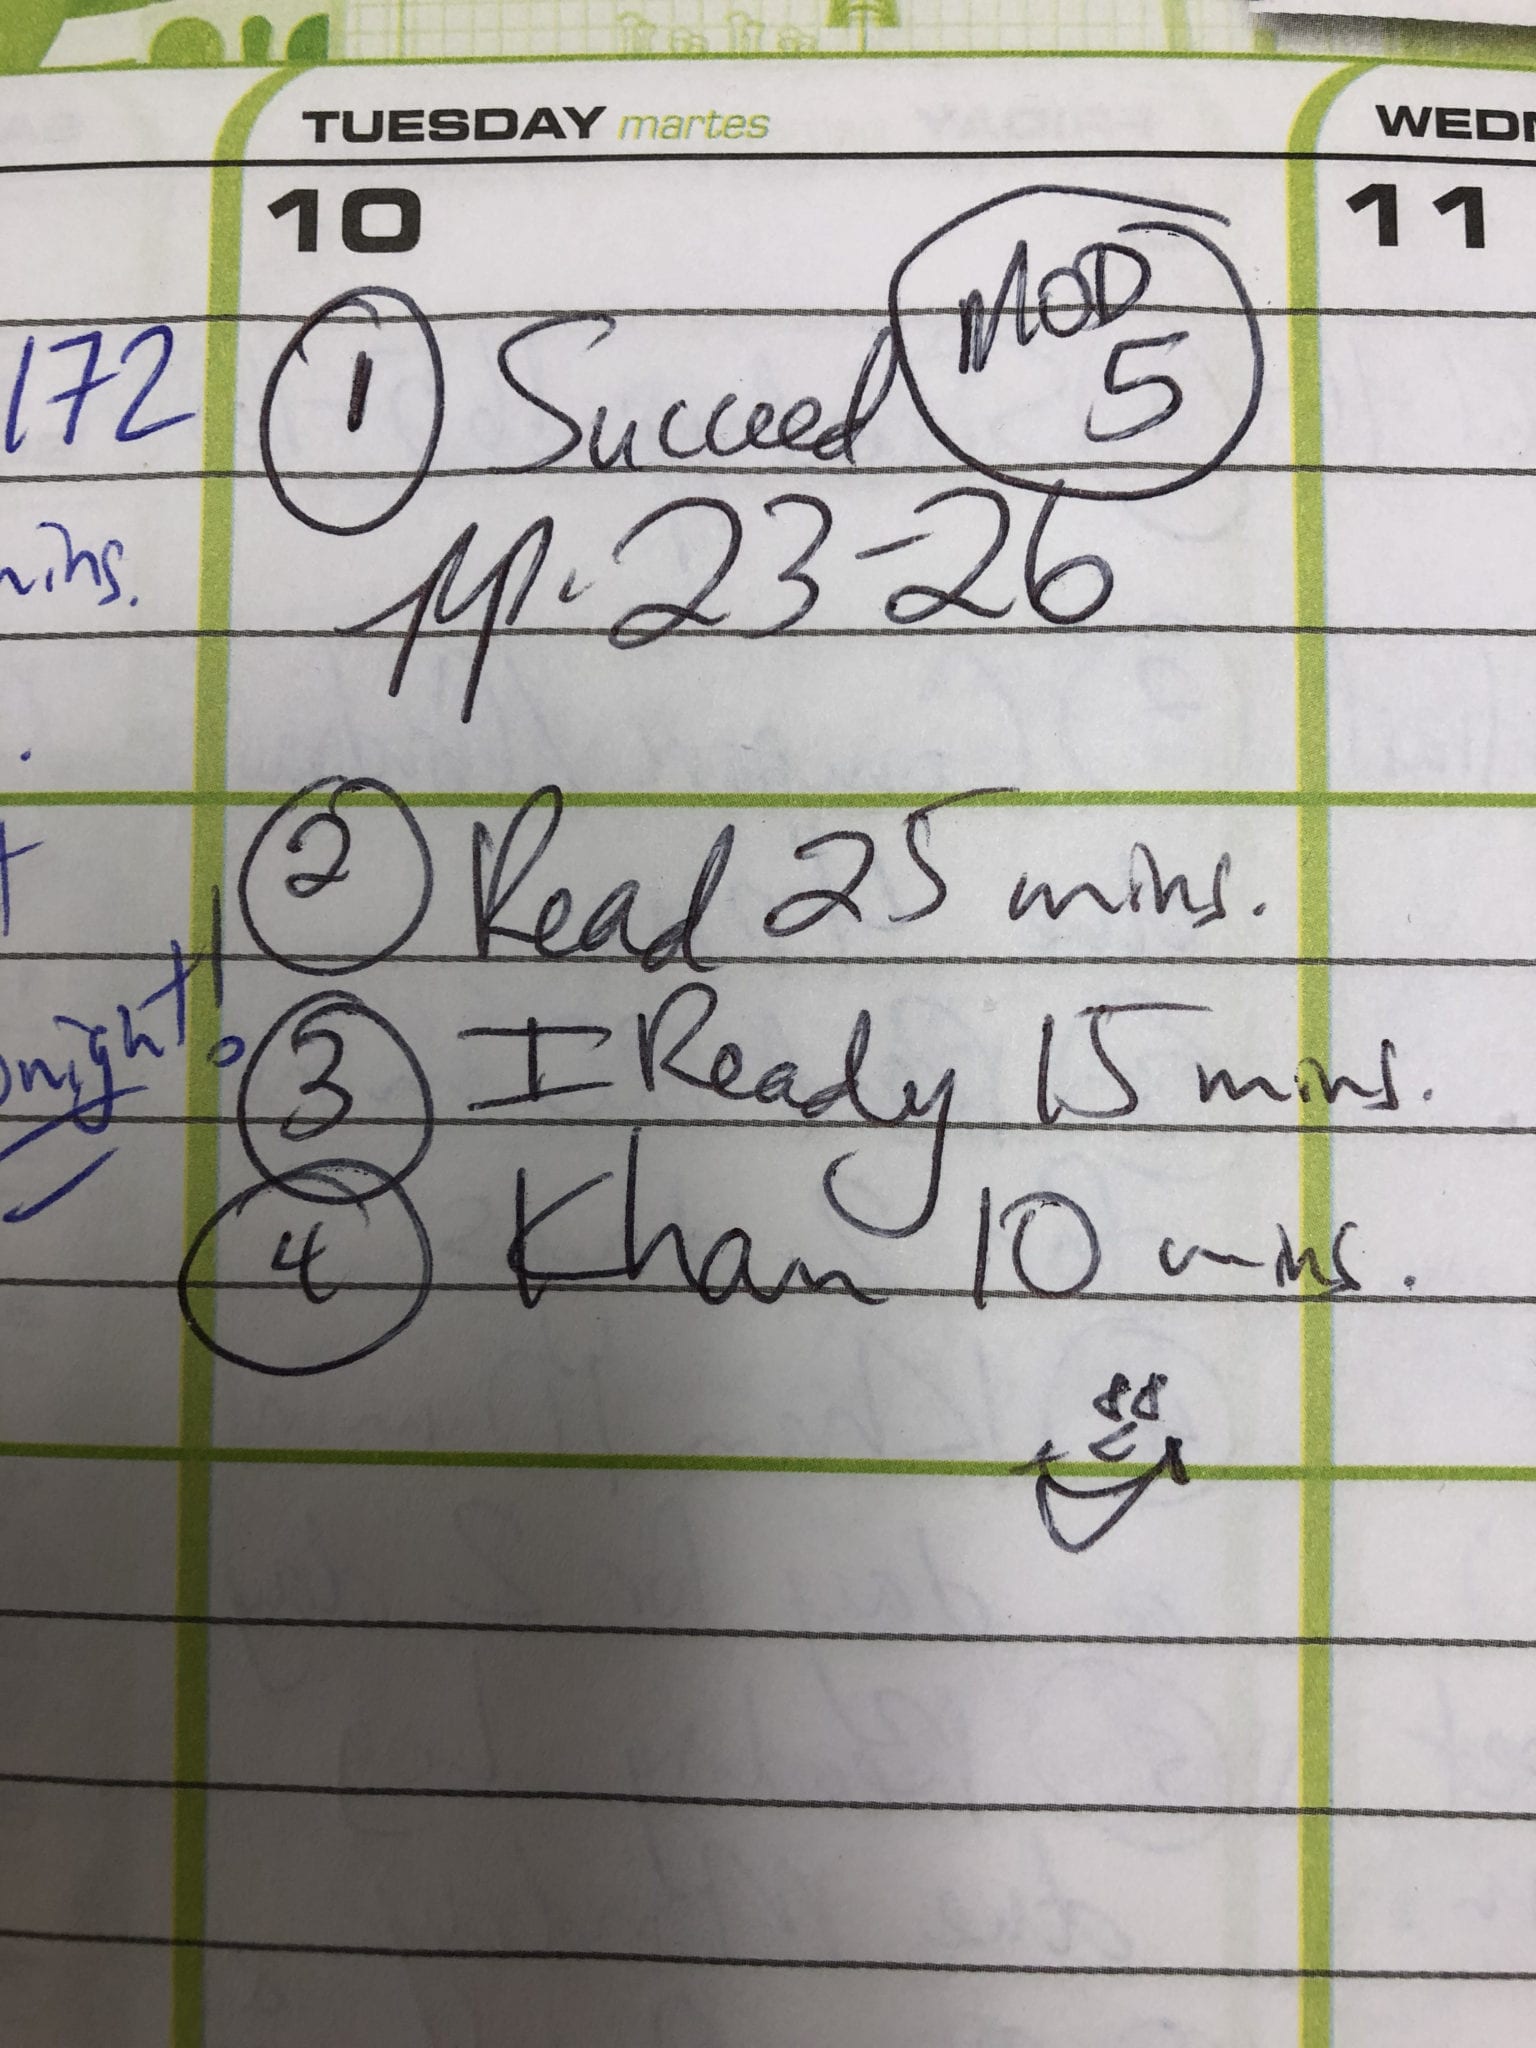 TUESDAY martes
WEDN
10
11
MOD
5
172
1 Succeed
mins.
pp. 23-26
2 Read 25 mins.
3 I Ready 15 mins.
onight!
4 Khan 10 mins.